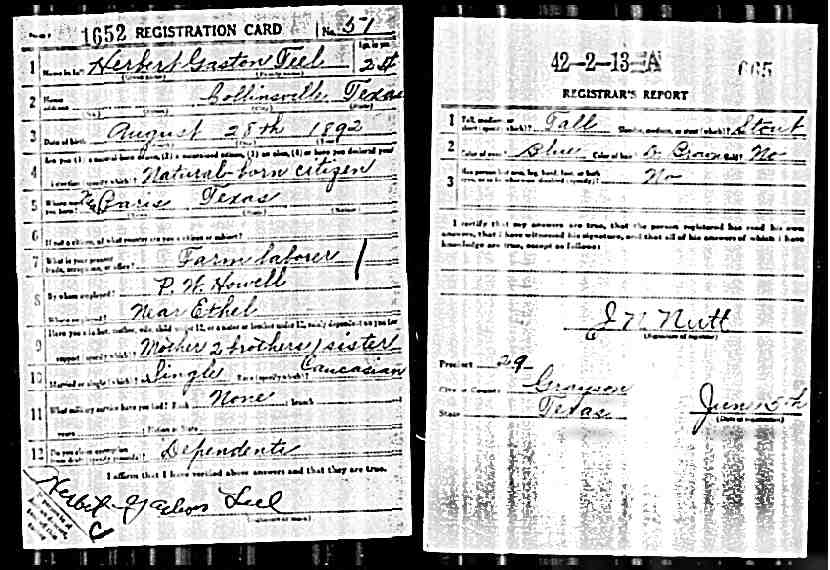 1652 REGISTRATION CARD No. 51
1 Name in full Herbert Gaston Teel Age, in yrs. 24
(Given name) (Family name)
2 Home address Collinsville Texas
(No.) (Street) (City) (State)
3 Date of birth August 28th 1892
(Month) (Day) (Year)
Are you (1) a natural-born citizen, (2) a naturalized citizen, (3) an alien, (4) or have you declared your
4 intention (specify which)? Natural-born citizen
5 Where were you born? Paris Texas
(Town) (State) (Nation)
6 If not a citizen, of what country are you a citizen or subject?
7 What is your present trade, occupation, or office? Farm laborer
8 By whom employed? P. W. Howell
Where employed? Near Ethel
Have you a father, mother, wife, child under 12, or a sister or brother under 12, solely dependent on you for
9 support (specify which)? Mother 2 brothers 1 sister
10 Married or single (which)? Single Race (specify which)? Caucasian
11 What military service have you had? Rank None branch
years Nation or State
12 Do you claim exemption from draft (specify grounds)? Dependents
I affirm that I have verified above answers and that they are true.
Herbert Gaston Teel
(Signature or mark)
42-2-13-A 665
REGISTRAR'S REPORT
1 Tall, medium, or short (specify which)? Tall Slender, medium, or stout (which)? Stout
2 Color of eyes? Blue Color of hair? D. Brown Bald? No
3 Has person lost arm, leg, hand, foot, or both eyes, or is he otherwise disabled (specify)? No
I certify that my answers are true, that the person registered has read his own
answers, that I have witnessed his signature, and that all of his answers of which I have
knowledge are true, except as follows:
J N Nutt
(Signature of registrar)
Precinct 29
City or County Grayson
State Texas June 5th
(Date of registration)